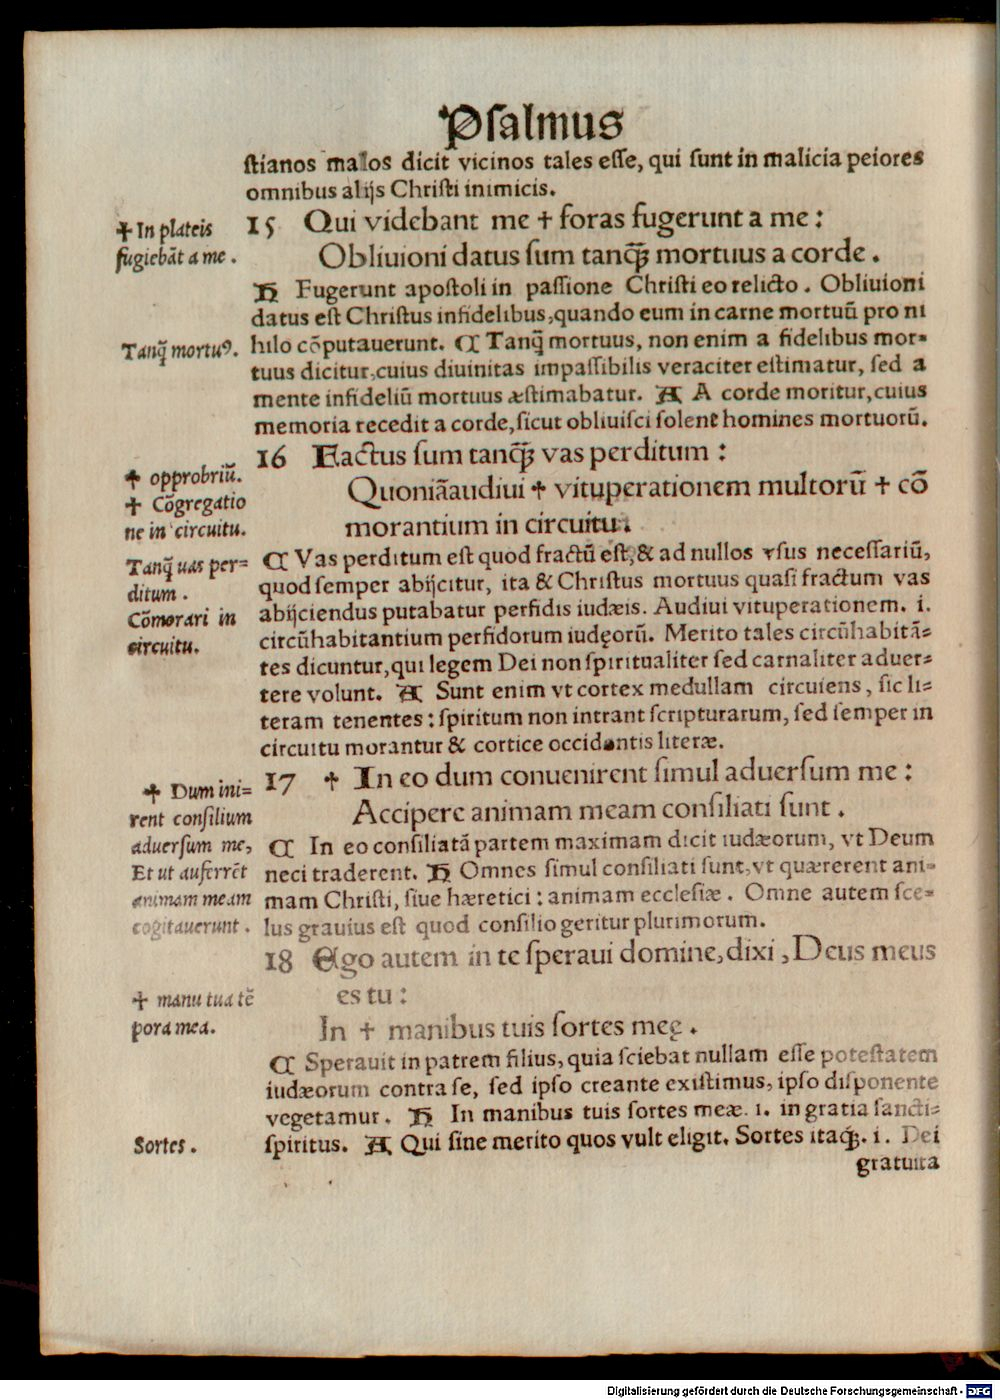 Psalmus
stianos malos dicit vicinos tales esse, qui sunt in malicia peiores
omnibus alijs Christi inimicis.
✝ In plateis
fugiebāt a me .
15 Qui videbant me ✝ foras fugerunt a me :
Obliuioni datus sum tanq̄ꝫ mortuus a corde .
H Fugerunt apostoli in passione Christi eo relicto . Obliuioni
datus est Christus infidelibus, quando eum in carne mortuū pro ni
Tanq̄ mortuꝰ.
hilo cōputauerunt. C Tanq̄ mortuus, non enim a fidelibus mor=
tuus dicitur, cuius diuinitas impassibilis veraciter estimatur, sed a
mente infideliū mortuus æstimabatur. A A corde moritur, cuius
memoria recedit a corde, sicut obliuisci solent homines mortuorū.
✝ opprobriū.
✝ Cōgregatio
ne in circuitu.
16 Factus sum tanq̄ꝫ vas perditum :
Quoniāaudiui ✝ vituperationem multorū ✝ cō
morantium in circuitu .
Tanq̄ uas per=
ditum .
Cōmorari in
circuitu.
C Vas perditum est quod fractū est, & ad nullos vsus necessariū,
quod semper abijcitur, ita & Christus mortuus quasi fractum vas
abijciendus putabatur perfidis iudæis. Audiui vituperationem. i.
circūhabitantium perfidorum iudęorū. Merito tales circūhabitā=
tes dicuntur, qui legem Dei non spiritualiter sed carnaliter aduer=
tere volunt. A Sunt enim vt cortex medullam circuiens , sic li=
teram tenentes : spiritum non intrant scripturarum, sed semper in
circuitu morantur & cortice occidentis literæ.
✝ Dum ini=
rent consilium
aduersum me,
Et ut auferrēt
animam meam
cogitauerunt .
17 ✝ In eo dum conuenirent simul aduersum me :
Accipere animam meam consiliati sunt .
C In eo consiliatā partem maximam dicit iudæorum, vt Deum
neci traderent. H Omnes simul consiliati sunt, vt quærerent ani=
mam Christi, siue hæretici : animam ecclesiæ . Omne autem sce=
lus grauius est quod consilio geritur plurimorum.
18 Ego autem in te speraui domine, dixi , Deus meus
es tu :
✝ manu tua tē
pora mea.
In ✝ manibus tuis sortes meę .
C Sperauit in patrem filius, quia sciebat nullam esse potestatem
iudæorum contra se, sed ipso creante existimus, ipso disponente
vegetamur . H In manibus tuis sortes meæ. i. in gratia sancti=
Sortes .
spiritus. A Qui sine merito quos vult eligit. Sortes itaqꝫ. i. Dei
gratuita
Digitalisierung gefördert durch die Deutsche Forschungsgemeinschaft - DFG